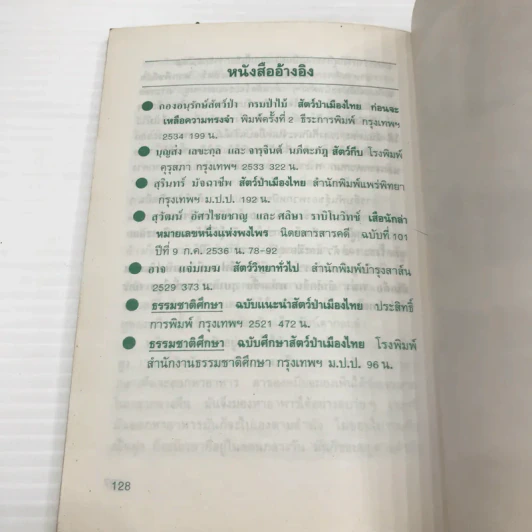 หนังสืออ้างอิง
กองอนุรักษ์สัตว์ป่า กรมป่าไม้ สัตว์ป่าเมืองไทย ก่อนจะ
เหลือความทรงจำ พิมพ์ครั้งที่ 2 ธีระการพิมพ์ กรุงเทพฯ
2534 199 น.
บุญส่ง เลขะกุล และ จารุจินต์ นภีตะภัฏ สัตว์กีบ โรงพิมพ์
คุรุสภา กรุงเทพฯ 2533 322 น.
สุรินทร์ มัจฉาชีพ สัตว์ป่าเมืองไทย สำนักพิมพ์แพร่พิทยา
กรุงเทพฯ ม.ป.ป. 192 น.
สุวัฒน์ อัศวไชยชาญ และ ศลิษา ราบิโนวิทซ์ เสือนักล่า
หมายเลขหนึ่งแห่งพงไพร นิตยสารสารคดี ฉบับที่ 101
ปีที่ 9 ก.ค. 2536 น. 78-92
อาจ แจ่มเมฆ สัตว์วิทยาทั่วไป สำนักพิมพ์บำรุงสาส์น
2529 373 น.
ธรรมชาติศึกษา ฉบับแนะนำสัตว์ป่าเมืองไทย ประสิทธิ์
การพิมพ์ กรุงเทพฯ 2521 472 น.
ธรรมชาติศึกษา ฉบับศึกษาสัตว์ป่าเมืองไทย โรงพิมพ์
สำนักงานธรรมชาติศึกษา กรุงเทพฯ ม.ป.ป. 96 น.
128